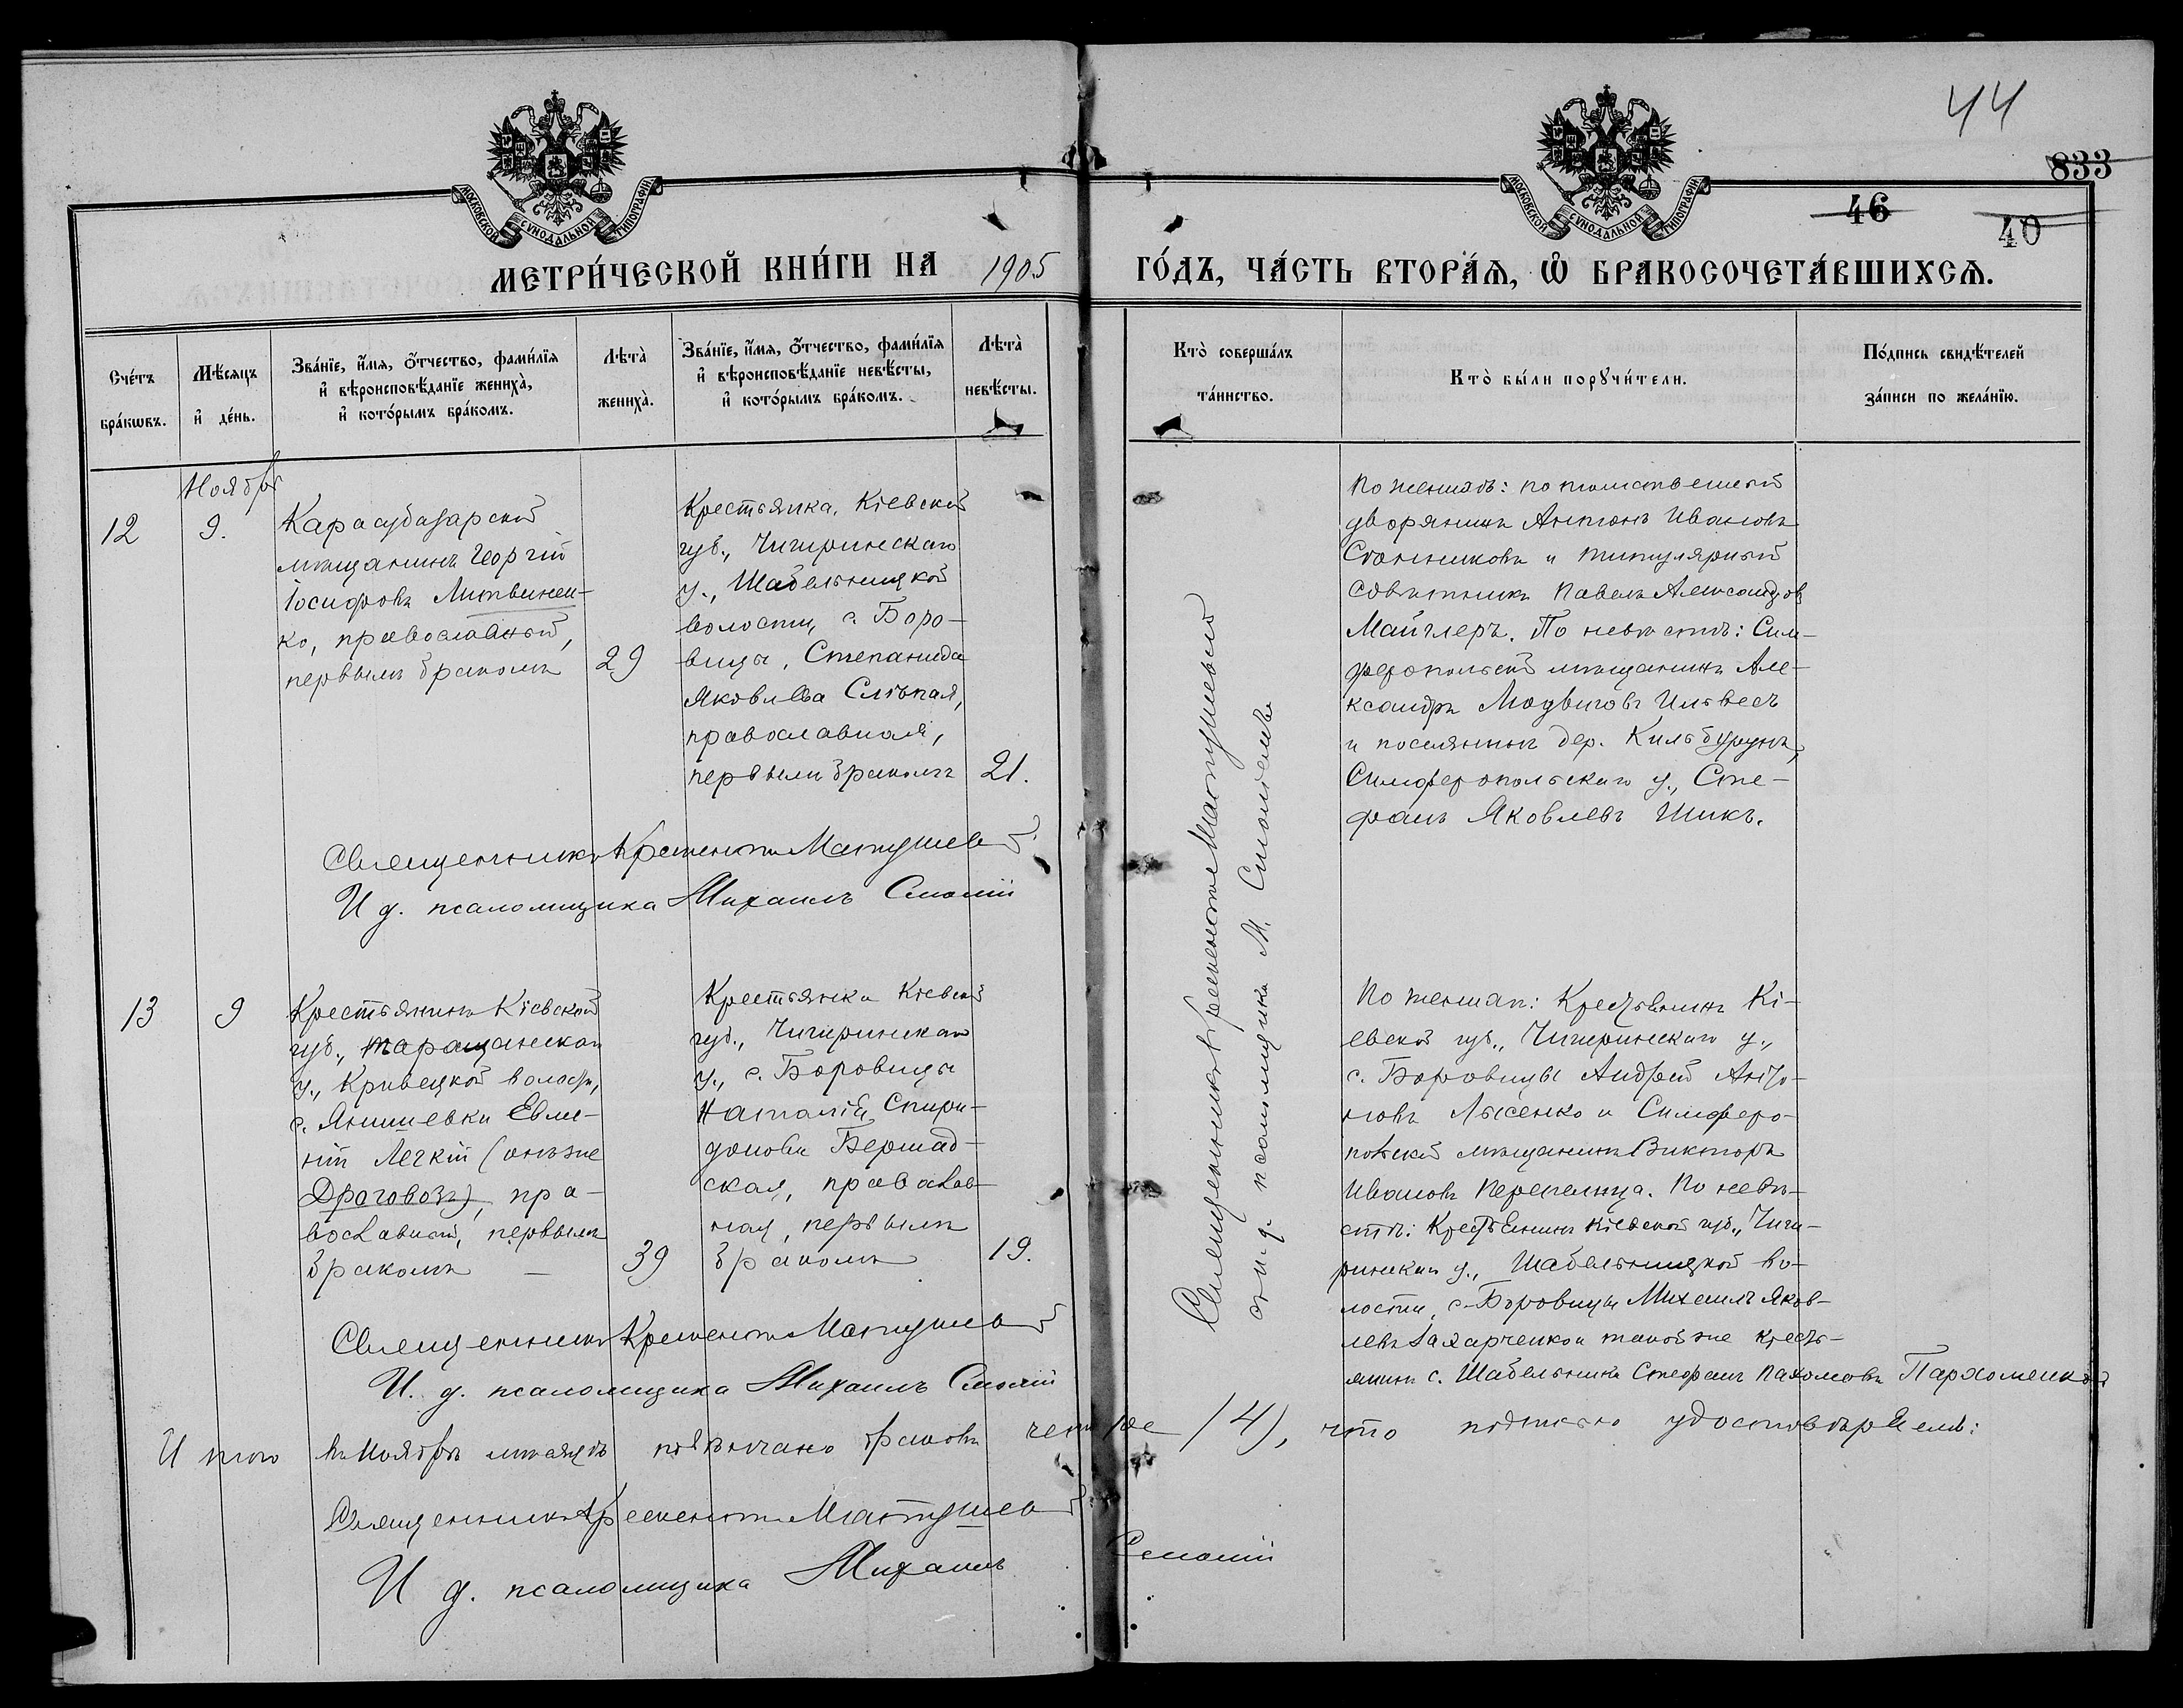 44
833
46
40
МОСКОВСКОЙ СѴНОДАЛЬНОЙ ТИПОГРАФІИ
МОСКОВСКОЙ СѴНОДАЛЬНОЙ ТИПОГРАФІИ
МЕТРИ́ЧЕСКОЙ КНИ́ГИ НА 1905 ГО́ДЪ, ЧА́СТЬ ВТОРА́Я, Ѡ҆ БРАКОСОЧЕТА́ВШИХСЯ.
Сче́тъ
бра́кѡвъ.
Мѣ́сяцъ
и҆ де́нь.
Зва́нїе, и҆́мя, ѻ҆́тчество, фами́лїя
и҆ вѣроисповѣ́данїе жениха̀,
и҆ кото́рымъ бра́комъ.
Лѣта̀
жениха̀.
Зва́нїе, и҆́мя, ѻ҆́тчество, фами́лїя
и҆ вѣроисповѣ́данїе невѣ́сты,
и҆ кото́рымъ бра́комъ.
Лѣта̀
невѣ́сты.
Кто̀ соверша́лъ
та́инство.
Кто̀ бы́ли порꙋчи́тели.
По́дпись свидѣ́телей
за́писи по жела́нїю.
12
Ноября
9.
Карасубазарской
мѣщанинъ Георгій
Іосифовъ Литвинен-
ко, православный,
первымъ бракомъ
29
Крестьянка, Кіевской
губ., Чигиринскаго
у., Шабельницкой
волости, с. Боро-
вицы, Степанида
Яковлева Слѣпая,
православная,
первымъ бракомъ
21.
По женихѣ: потомственный
дворянинъ Антонъ Ивановъ
и титулярный
совѣтникъ Павелъ Александровъ
Майглеръ. По невѣстѣ: Сим-
феропольскій мѣщанинъ Але-
ксандръ Людвиговъ
и поселянинъ дер. Кильбурунъ,
Симферопольскаго у., Сте-
фанъ Яковлевъ Шикъ.
Священникъ Крискентъ Матушевъ
И д. псаломщика Михаилъ Смолій
Священникъ Крискентъ Матушевъ
съ и. д. псаломщика М.
13
9
Крестьянинъ Кіевской
губ., Таращанскаго
у., Кривецкой волости,
с. Янишевки Евме-
ній Легкій (онъ же
Драговозъ), пра-
вославный, первымъ
бракомъ —
39
Крестьянка Кіевской
губ., Чигиринскаго
у., с. Боровицы
Наталія Спири-
донова Бершад-
ская, православ-
ная, первымъ
бракомъ
19.
По женихѣ: Крестьянинъ Кі-
евской губ., Чигиринскаго у.,
с. Боровицы Андрей Анто-
новъ Лысенко и Симферо-
польскій мѣщанинъ Викторъ
Ивановъ Перепелица. По невѣ-
стѣ: Крестьянинъ Кіевской губ., Чиги-
ринскаго у., Шабельницкой во-
лости, с. Боровицы Михаилъ Яков-
левъ Захарченко и такой же кресть-
янинъ с. Шабельника Стефанъ Пахомовъ Пархоменко
Священникъ Крискентъ Матушевъ
И. д. псаломщика Михаилъ Смолій
Итого въ Ноябрѣ мѣсяцѣ повѣнчано браковъ четыре (4), что подписью удостовѣряемъ:
Священникъ Крискентъ Матушевъ
И д. псаломщика Михаилъ Смолій